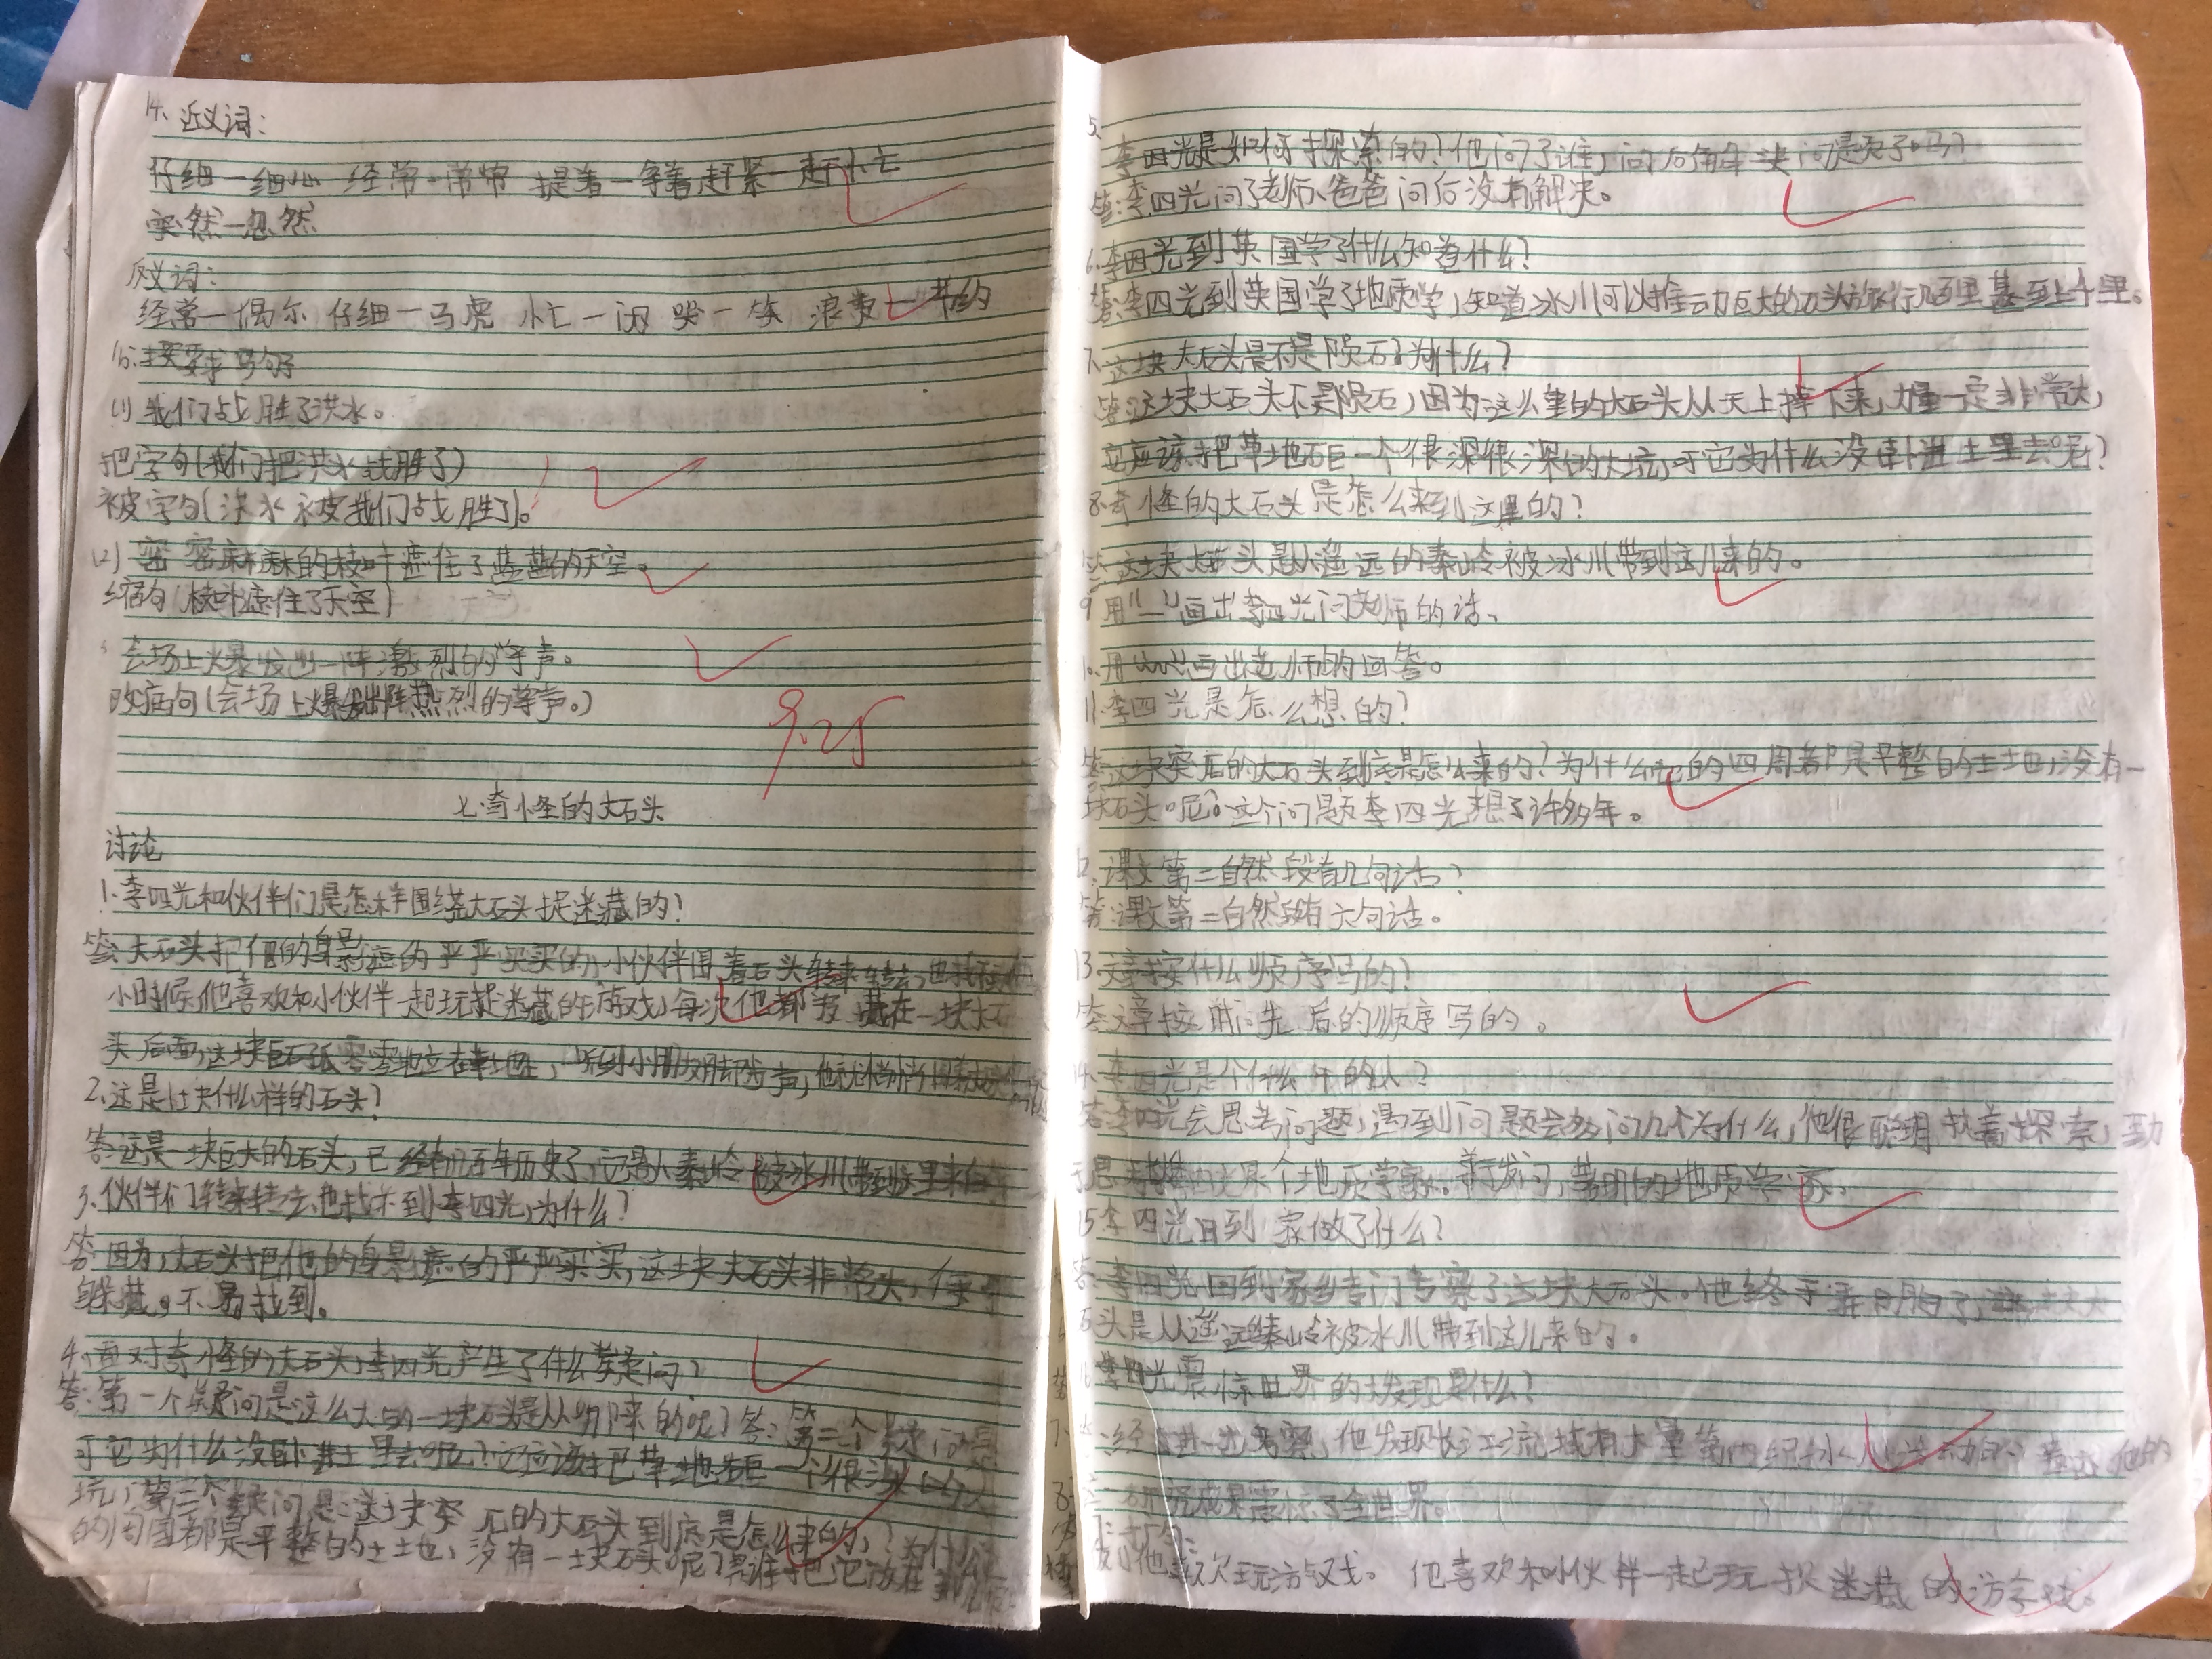 14. 近义词:
仔细—细心 经常-常常 提着—拿着 赶紧—赶忙
突然—忽然
反义词:
经常—偶尔 仔细—马虎 忙—闲 哭—笑 浪费—节约
按要求写句子
(1) 我们战胜了洪水。
把字句(我们把洪水战胜了)
被字句(洪水被我们战胜了)。
(2) 密密麻麻的枝叶遮住了蓝蓝的天空。
缩句(枝叶遮住了天空)
会场上爆发出一阵激烈的掌声。
改病句(会场上爆发出阵热烈的掌声。)
9.25
七.奇怪的大石头
讨论
1.李四光和伙伴们是怎样围绕大石头捉迷藏的?
答:大石头把他的身影遮的严严实实的,小伙伴围着石头转来转去,也找不
小时候,他喜欢和小伙伴一起玩捉迷藏的游戏,每次他都 藏在一块大石
头后面,这块巨石孤零零地立在草地上,听到小朋友脚步声,他就
2.这是一块什么样的石头?
答:这是一块巨大的石头,已经有几百年历史了,它是从秦岭被冰川带到这里来的
3.伙伴们转来转去,也找不到李四光,为什么?
答:因为,大石头把他的身影遮的严严实实,这块大石头非常大,
躲藏,不易找到。
4.面对奇怪的大石头,李四光产生了什么疑问?
答:第一个疑问是这么大的一块石头是从哪儿来的呢?答:第二个疑问是
可它为什么没卧进土里去呢?它应该把草地 一个很深的大
坑,第三个疑问是:这块突兀的大石头到底是怎么来的,?为什么
的周围都是平整的土地,没有一块石头呢?是谁把它放在
5.
李四光是如何探索的?他问了谁,问后解决问题了吗?
答:李四光问了老师、爸爸问后没有解决。
6.李四光到英国学了什么知道什么?
答:李四光到英国学了地质学,知道冰川可以推动巨大的石头旅行几百里甚至上千里。
7.这块大石头是不是陨石?为什么?
答:这块大石头不是陨石,因为这么重的大石头从天上掉下来,力量一定非常大,
它应该把草地砸一个很深很深的大坑,可它为什么没卧进土里去呢?
8.奇怪的大石头是怎么来到这里的?
答:这块大石头是从遥远的秦岭被冰川带到这儿来的。
9用“—”画出李四光问老师的话、
10.用“﹏”画出老师的回答。
11.李四光是怎么想的?
答:这块突兀的大石头到底是怎么来的?为什么它的四周都是平整的土地,没有一
块石头呢?这个问题李四光想了许多年。
12.课文第二自然段有几句话?
答:课文第二自然段有六句话。
13.文章按什么顺序写的?
答:文章按 先后的顺序写的。
14.李四光是个什么样的人?
答:李四光会思考问题,遇到问题会多问几个为什么,他很聪明 执着探索,勤
于思考 是个地质学家。 著名的地质学家。
15李四光回到家做了什么?
答:李四光回到家乡专门考察了这块大石头。他终于弄明白了,这块大
石头是从遥远秦岭被冰川带到这儿来的。
16.李四光震惊世界的发现是什么?
经过进一步考察,他发现长江流域有大量第四纪冰川活动的
研究成果震惊了全世界。
他喜欢玩游戏。 他喜欢和小伙伴一起玩捉迷藏的游戏。